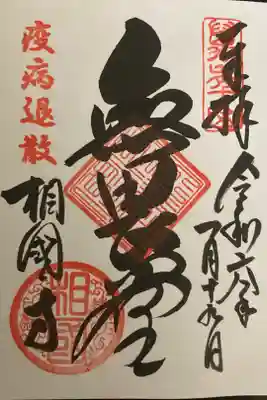 奉拝
令和六年
月十九日
無畏堂
疫病退散
相國寺
相國